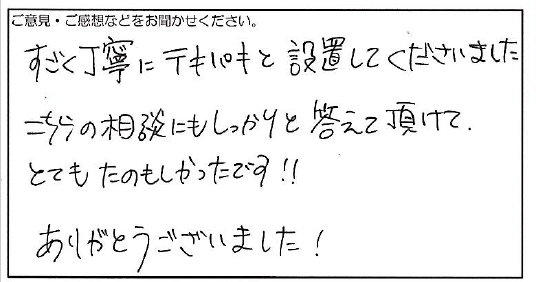 ご意見・ご感想などをお聞かせください。
すごく丁寧にテキパキと設置してくださいました
こちらの相談にもしっかりと答えて頂けて、
とてもたのもしかったです!!
ありがとうございました!